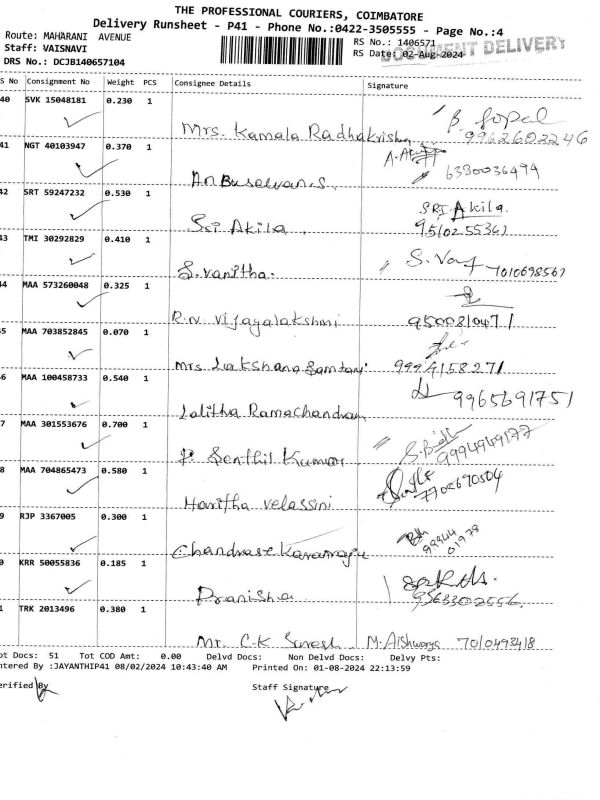 THE PROFESSIONAL COURIERS, COIMBATORE
Delivery Runsheet - P41 - Phone No.:0422-3505555 - Page No.:4
Route: MAHARANI AVENUE
RS No.: 1406571
DOCUMENT DELIVERY
Staff: VAISNAVI
RS Date: 02-Aug-2024
DRS No.: DCJB140657104
S No Consignment No Weight PCS Consignee Details Signature
40 SVK 15048181 0.230 1
Mrs. Kamala Radhakrishnan B. Gopal
9962602246
41 NGT 40103947 0.370 1
Anbuselvan.s. 6380036494
42 SRT 59247232 0.530 1
Sri Akila. SRI Akila.
43 TMI 30292829 0.410 1
S. Vanitha. 7010698567
44 MAA 573260048 0.325 1
R.N. Vijayalakshmi 9500810471
5 MAA 703852845 0.070 1
Mrs Lakshana Samtani 9994158271
6 MAA 100458733 0.540 1
Lalitha Ramachandran 9965691751
7 MAA 301553676 0.700 1
P. Senthil Kumar 9994949177
8 MAA 704865473 0.580 1
Haritha velassini 7708690504
9 RJP 3367005 0.300 1
Chandrasekararaju 99944 01978
0 KRR 50055836 0.185 1
Pranisha 9563302556
1 TRK 2013496 0.380 1
Mr. C.K Suresh. M. Aishwarya 7010493418
ot Docs: 51 Tot COD Amt: 0.00 Delvd Docs: Non Delvd Docs: Delvy Pts:
ntered By :JAYANTHIP41 08/02/2024 10:43:40 AM Printed On: 01-08-2024 22:13:59
erified By Staff Signature